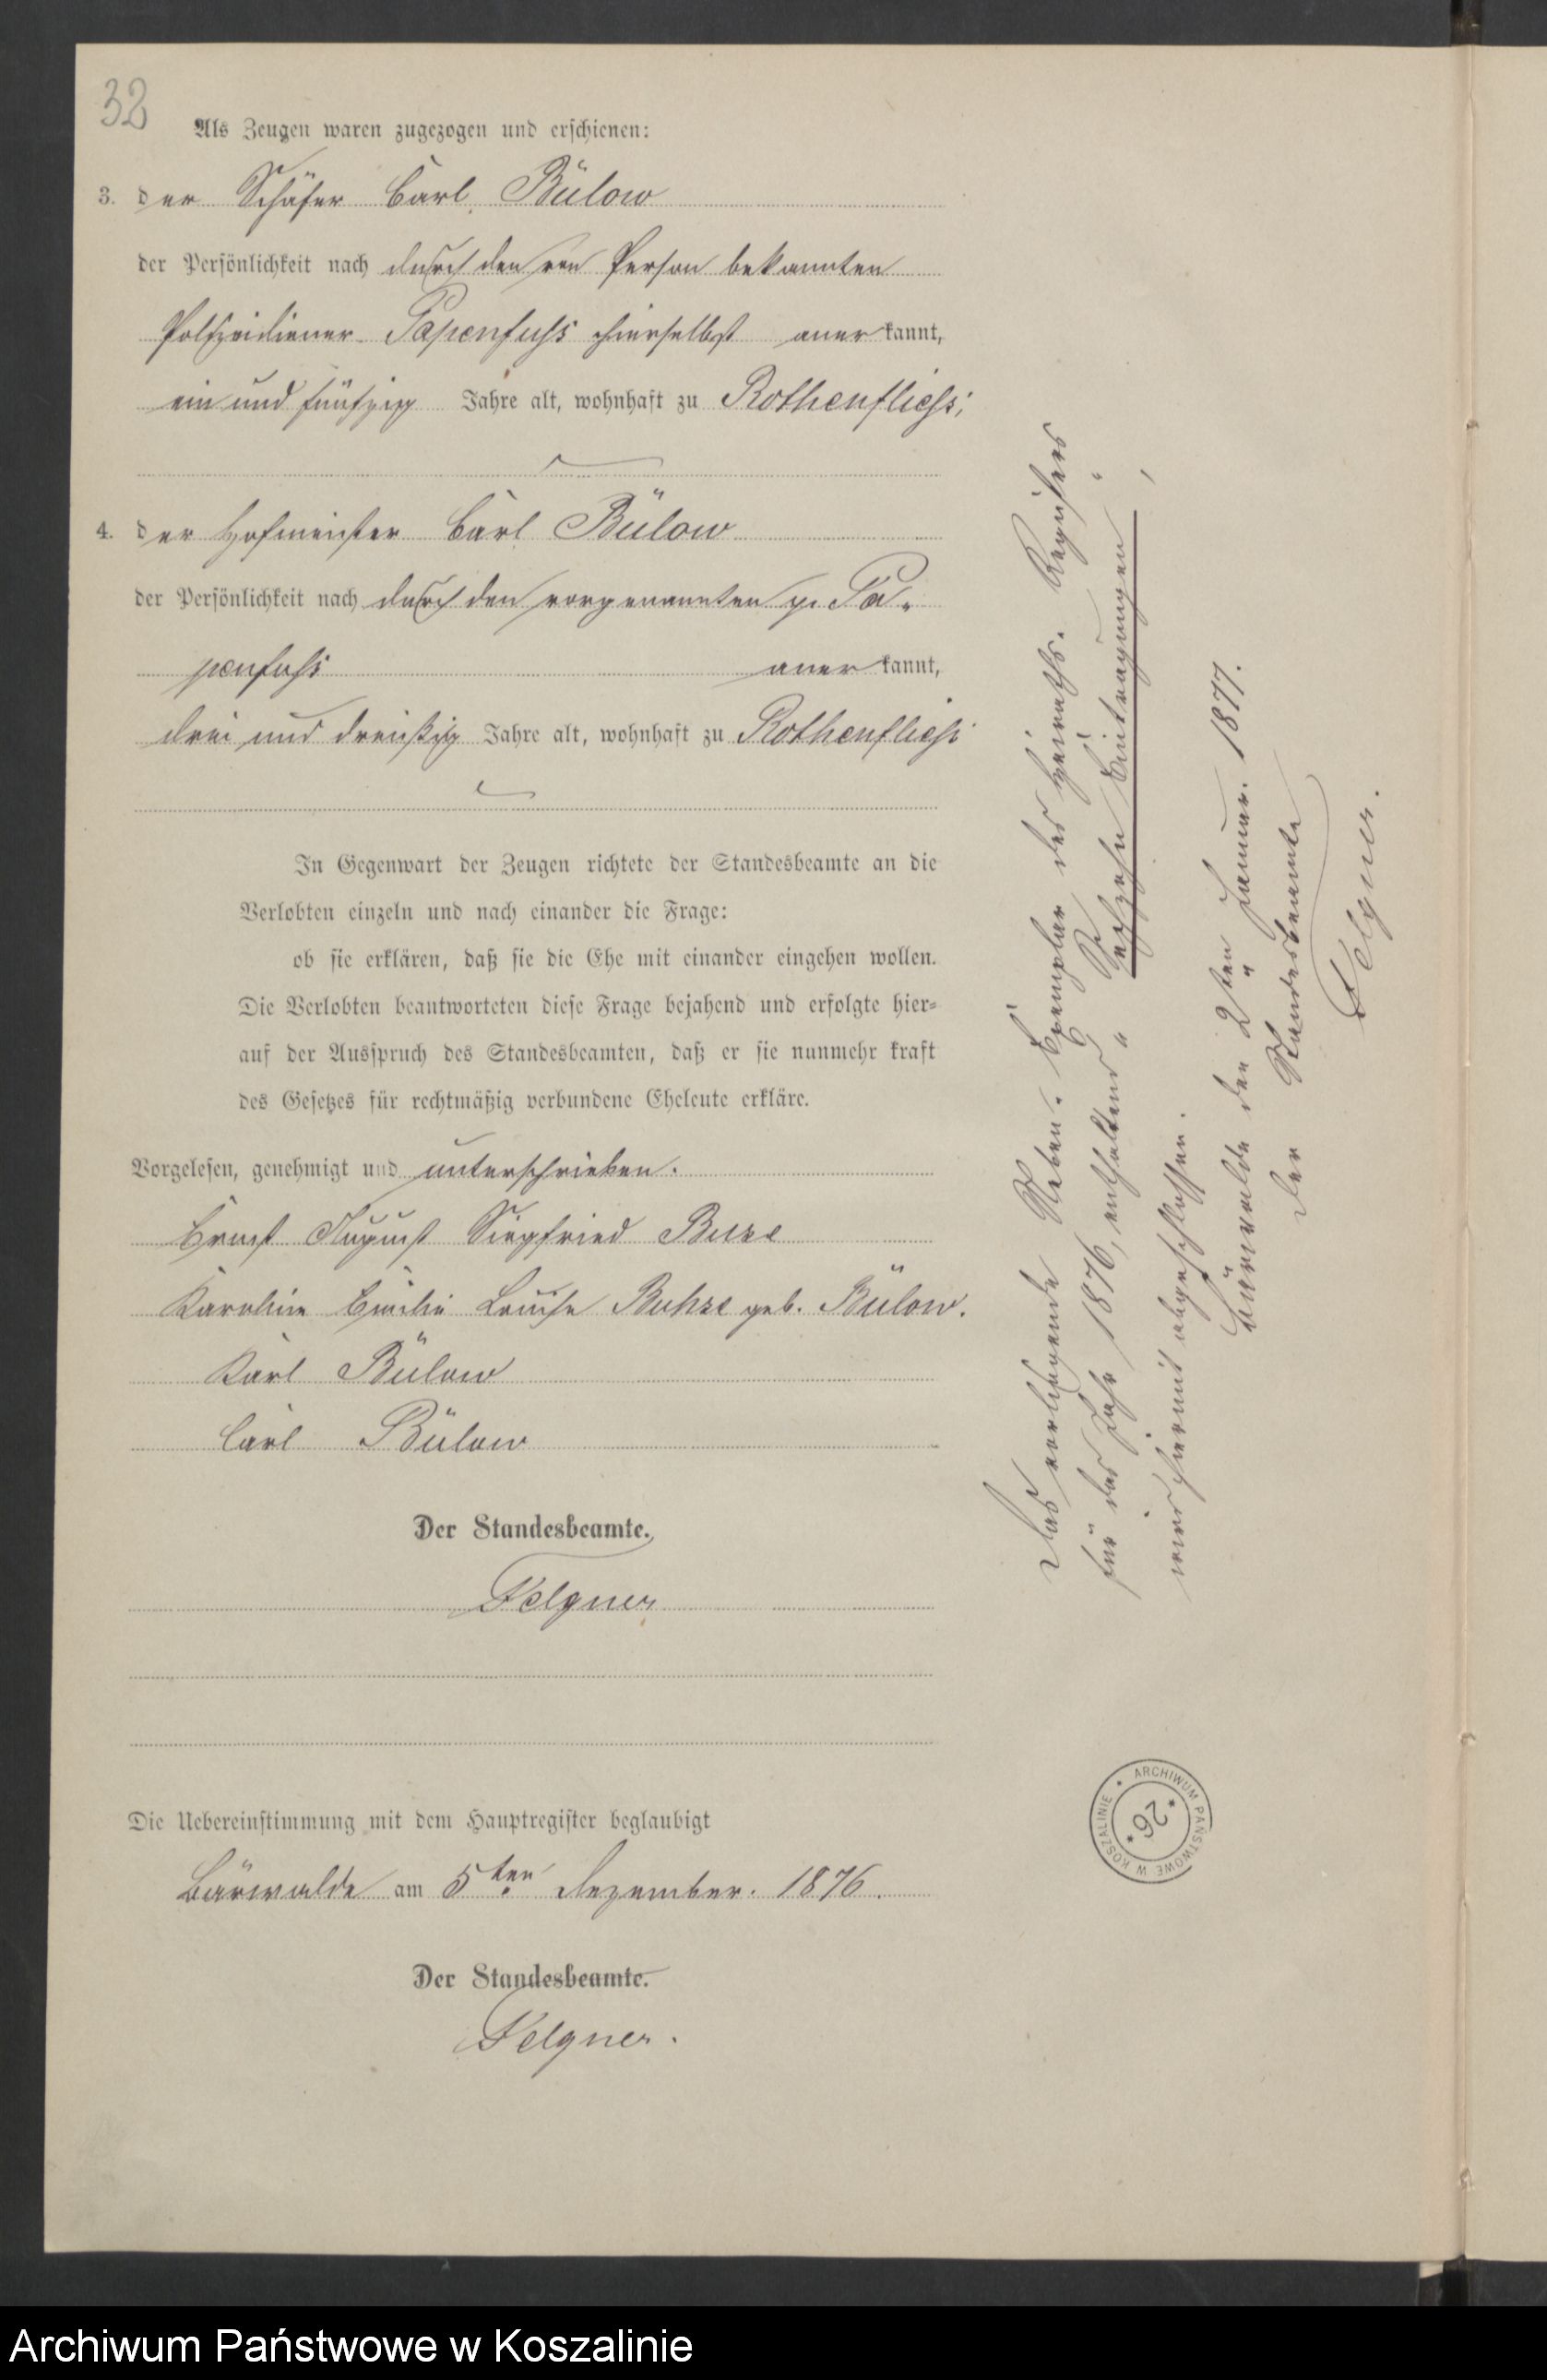 32
Als Zeugen waren zugezogen und erschienen:
3. der Schäfer Carl Bülow
der Persönlichkeit nach durch den von Person bekannten
Polizeidiener Papenfuss hierselbst anerkannt,
ein und fünfzig Jahre alt, wohnhaft zu Rothenfliess;
4. der Hofmeister Carl Bülow
der Persönlichkeit nach durch den vorgenannten p. Pa-
penfuss anerkannt,
drei und dreißig Jahre alt, wohnhaft zu Rothenfliess
In Gegenwart der Zeugen richtete der Standesbeamte an die
Verlobten einzeln und nach einander die Frage:
ob sie erklären, daß sie die Ehe mit einander eingehen wollen.
Die Verlobten beantworteten diese Frage bejahend und erfolgte hier-
auf der Ausspruch des Standesbeamten, daß er sie nunmehr kraft
des Gesetzes für rechtmäßig verbundene Eheleute erkläre.
Vorgelesen, genehmigt und unterschrieben.
Ernst August Siegfried Buse
Karoline Emilie Louise Buhse geb. Bülow.
Karl Bülow
Carl Bülow
Der Standesbeamte.
Felgner
Die Uebereinstimmung mit dem Hauptregister beglaubigt
Bärwalde am 5ten Dezember. 1876.
Der Standesbeamte.
Felgner.
Das vorliegende Neben-Exemplar des Heiraths-Registers
für das Jahr 1876, enthaltend "Sechzehn Eintragungen",
wird hiermit abgeschlossen.
Bärwalde den 2ten Januar. 1877.
Der Standesbeamte
Felgner.
ARCHIWUM PAŃSTWOWE W KOSZALINIE
26
Archiwum Państwowe w Koszalinie